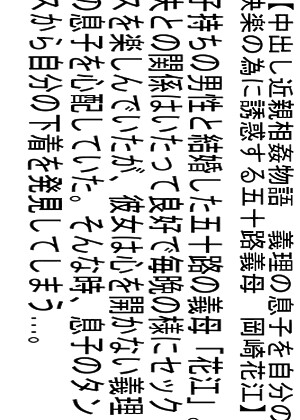 【中出し近親相姦物語　義理の息子を自分の
快楽の為に誘惑する五十路義母　岡崎花江】
子持ちの男性と結婚した五十路の義母「花江」。
夫との関係はいたって良好で毎晩の様にセック
スを楽しんでいたが、彼女は心を開かない義理
の息子を心配していた。そんな時、息子のタン
スから自分の下着を発見してしまう…。